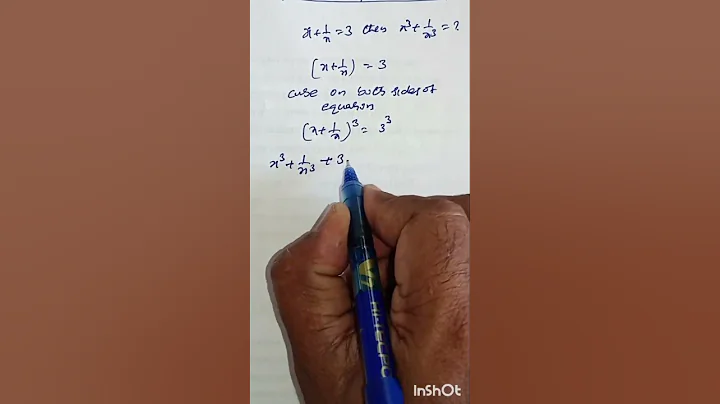 x+1/x=3 then x³+1/x³=?
(x+1/x) = 3
cube on both sides of
equation
(x+1/x)³= 3³
x³+1/x³+3
V7
HI-TECPC
InShOt